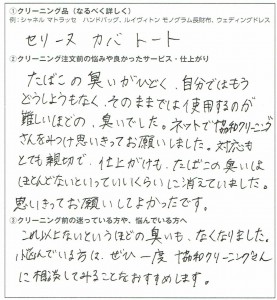 ①クリーニング品（なるべく詳しく）
例：シャネル マトラッセ　ハンドバッグ、ルイヴィトン モノグラム長財布、ウェディングドレス
セリーヌ　カバ　トート
②クリーニング注文前の悩みや良かったサービス・仕上がり
たばこの臭いがひどく、自分ではもう
どうしようもなく、そのままでは使用するのが
難しいほどの、臭いでした。ネットで協和クリーニング
さんをみつけ思いきってお願いしました。対応も
とても親切で、仕上がりも、たばこの臭いは
ほとんどないといっていいくらいに消えていました。
思いきってお願いしてよかったです。
③クリーニング前の迷っている方や、悩んでいる方へ
これ以上ないというほどの臭いも、なくなりました。
悩んでいる方は、ぜひ一度 協和クリーニングさん
に相談してみることをおすすめします。